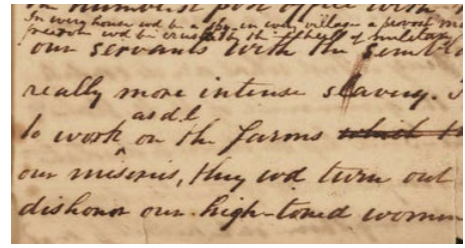 humblest post office with
In every house wd be a spy, in every village a provost
freedom wd be crushed by the of military
our servants with the
really more intense slavery.
as d.l
to work on the farms which
our miseries, they wd turn out
dishonor our high-toned women